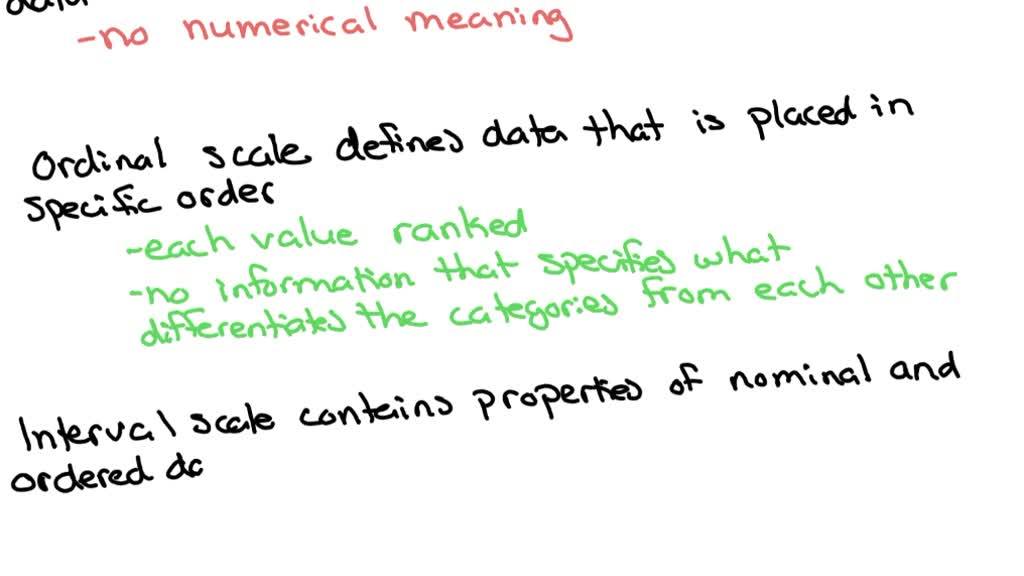 data
-no numerical meaning
Ordinal scale defines data that is placed in
specific order
-each value ranked
-no information that specifies what
differentiates the categories from each other
Interval scale contains properties of nominal and
ordered da